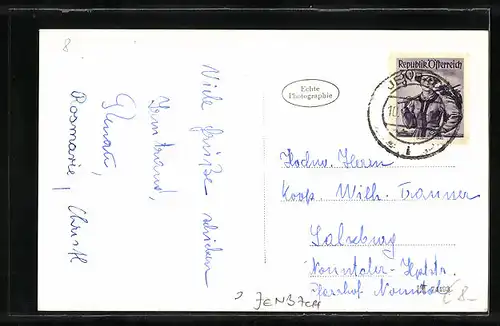 8
Viele Grüße schicken
Irmtraud,
Rosmarie, Christl
Echte
Photographie
Republik Österreich
JEN
10.
Hochw. Herrn
Koop. Wilh. Tranner
Salzburg
Nonntaler-Hptstr.
Pfarrhof Nonntal
€ 8-
JENBACH